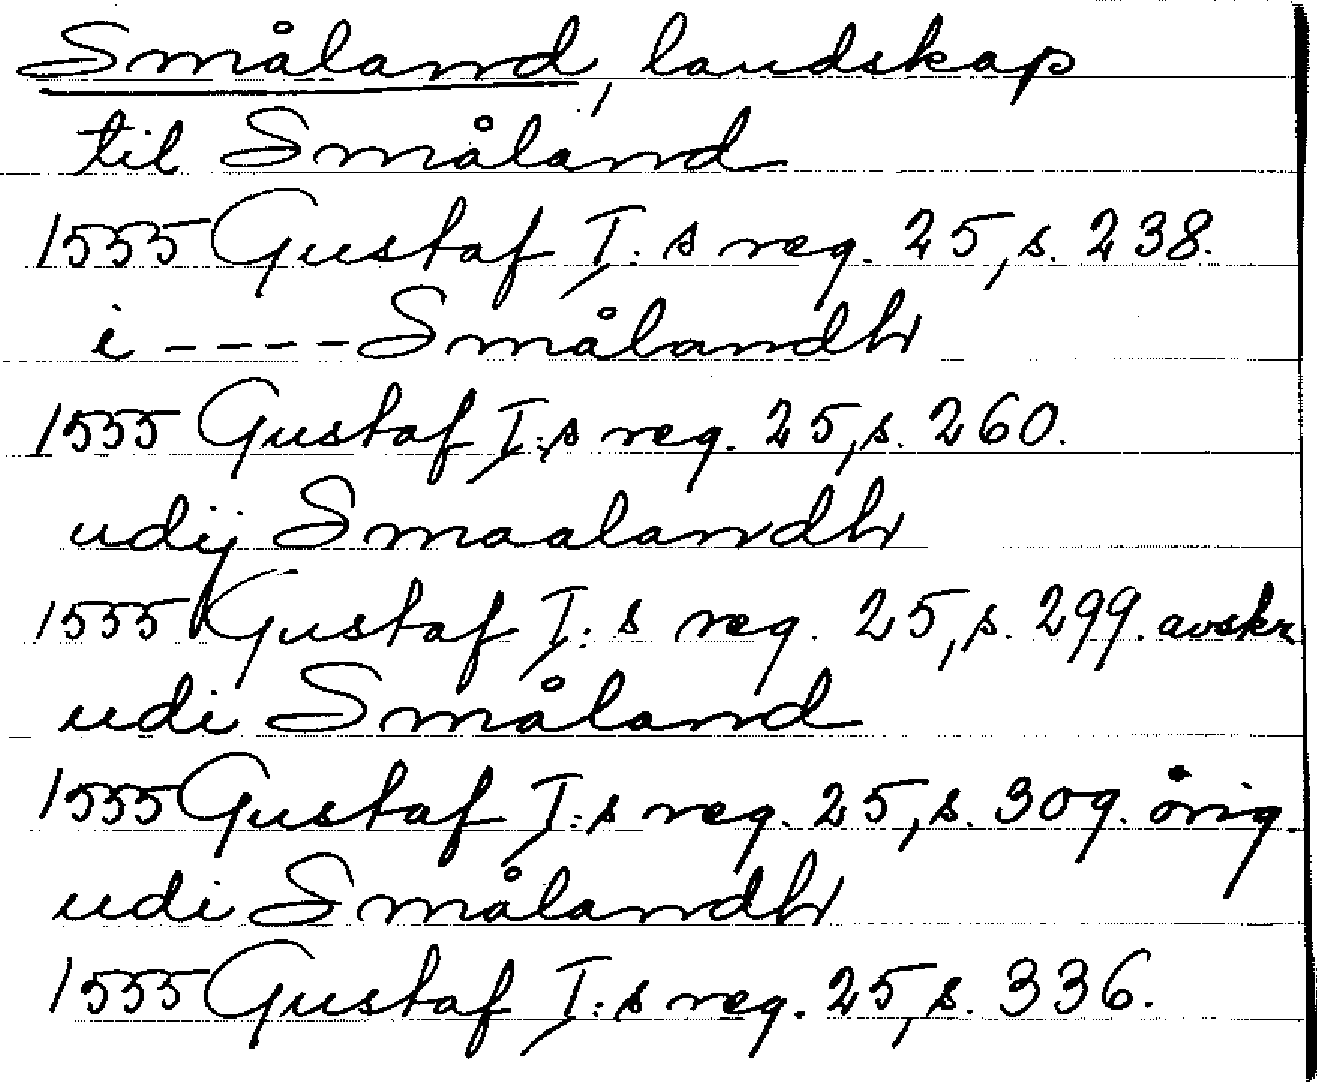 Småland, landskap
til Småland
1555 Gustaf I:s reg. 25, s. 238.
i ---- Smålandh
1555 Gustaf I:s reg. 25, s. 260.
udij Smaalandh
1555 Gustaf I:s reg. 25, s. 299. avskr
udi Småland
1555 Gustaf I:s reg. 25, s. 309. orig.
udi Smålandh
1555 Gustaf I:s reg. 25, s. 336.